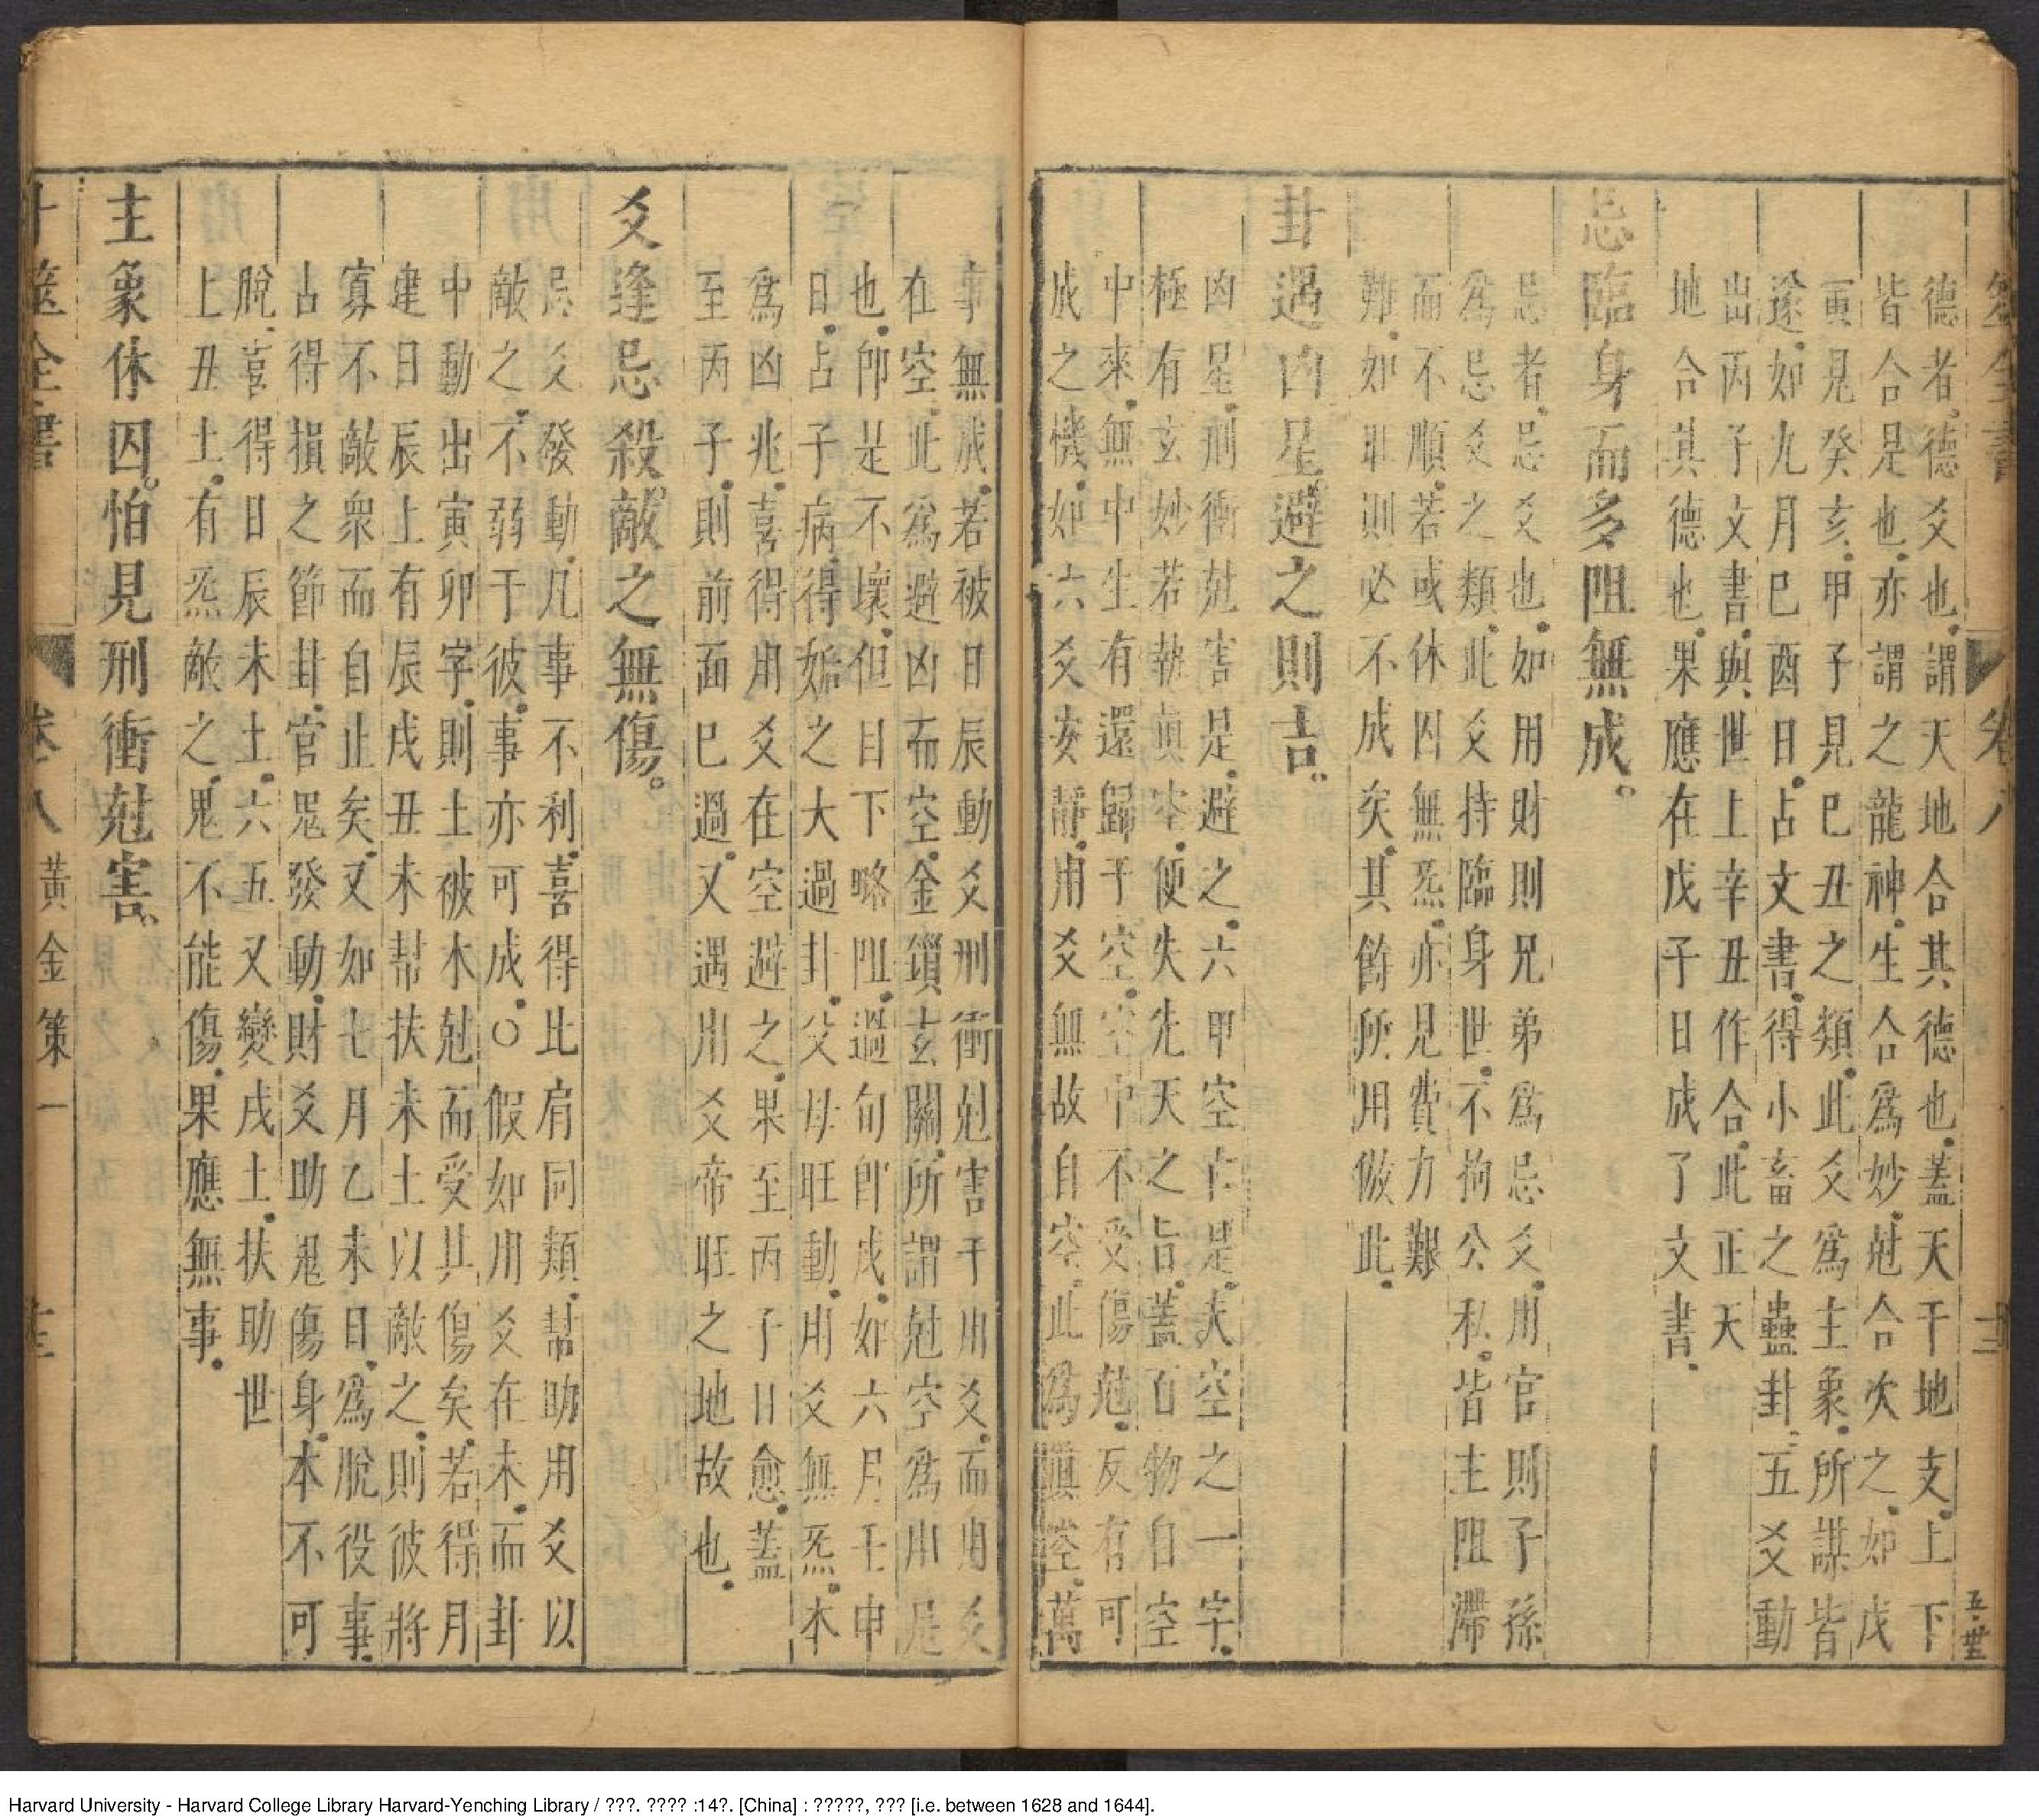 德者德爻也謂天地合其德也蓋天干地支上下
皆合是也亦謂之龍神生合為妙尅合次之如戊
寅見癸亥甲子見巳丑之類此爻為主象所謀皆
途如九月巳酉日占文書得小畜之蠱卦五爻動
出丙子文書與世上辛丑作合此正天
地合其德也果應在戊子日成了文書
忌臨身而多阻無成
忌者忌爻也如用財則兄弟為忌爻用官則子孫
為忌爻之類此爻持臨身世不拘公私皆主阻滯
而不順若或休囚無炁亦見費力艱
難如旺則必不成矣其餘所用倣此
卦遇凶星避之則吉
凶星刑衝尅害是避之六甲空亡是夫空之一字
極有玄妙若執眞空便失先天之旨蓋百物自空
中來無中生有還歸于空空中不受傷尅反有可
成之機如六爻安靜用爻無故自空此為眞空萬
事無成若被日辰動爻刑衝尅害干用爻而用爻
在空此為避凶而空金鎖玄關所謂尅空為用是
也卽是不壞但目下略阻過旬卽成如六月壬申
日占子病得姤之大過卦父母旺動用爻無炁本
為凶兆喜得用爻在空避之果至丙子日愈蓋
至丙子則前面巳過又遇用爻帝旺之地故也
爻逢忌殺敵之無傷
忌爻發動凡事不利喜得比肩同類幇助用爻以
敵之不弱于彼事亦可成○假如用爻在未而卦
中動出寅卯字則土被木尅而受其傷矣若得月
建日辰上有辰戌丑未幇扶未土以敵之則彼將
寡不敵衆而自止矣又如七月乙未日為脫役事
占得損之節卦官鬼發動財爻助鬼傷身本不可
脫喜得日辰未土六五又變戌土扶助世
上丑土有炁敵之鬼不能傷果應無事
主象休囚怕見刑衝尅害
卜筮全書 卷八 黃金策一